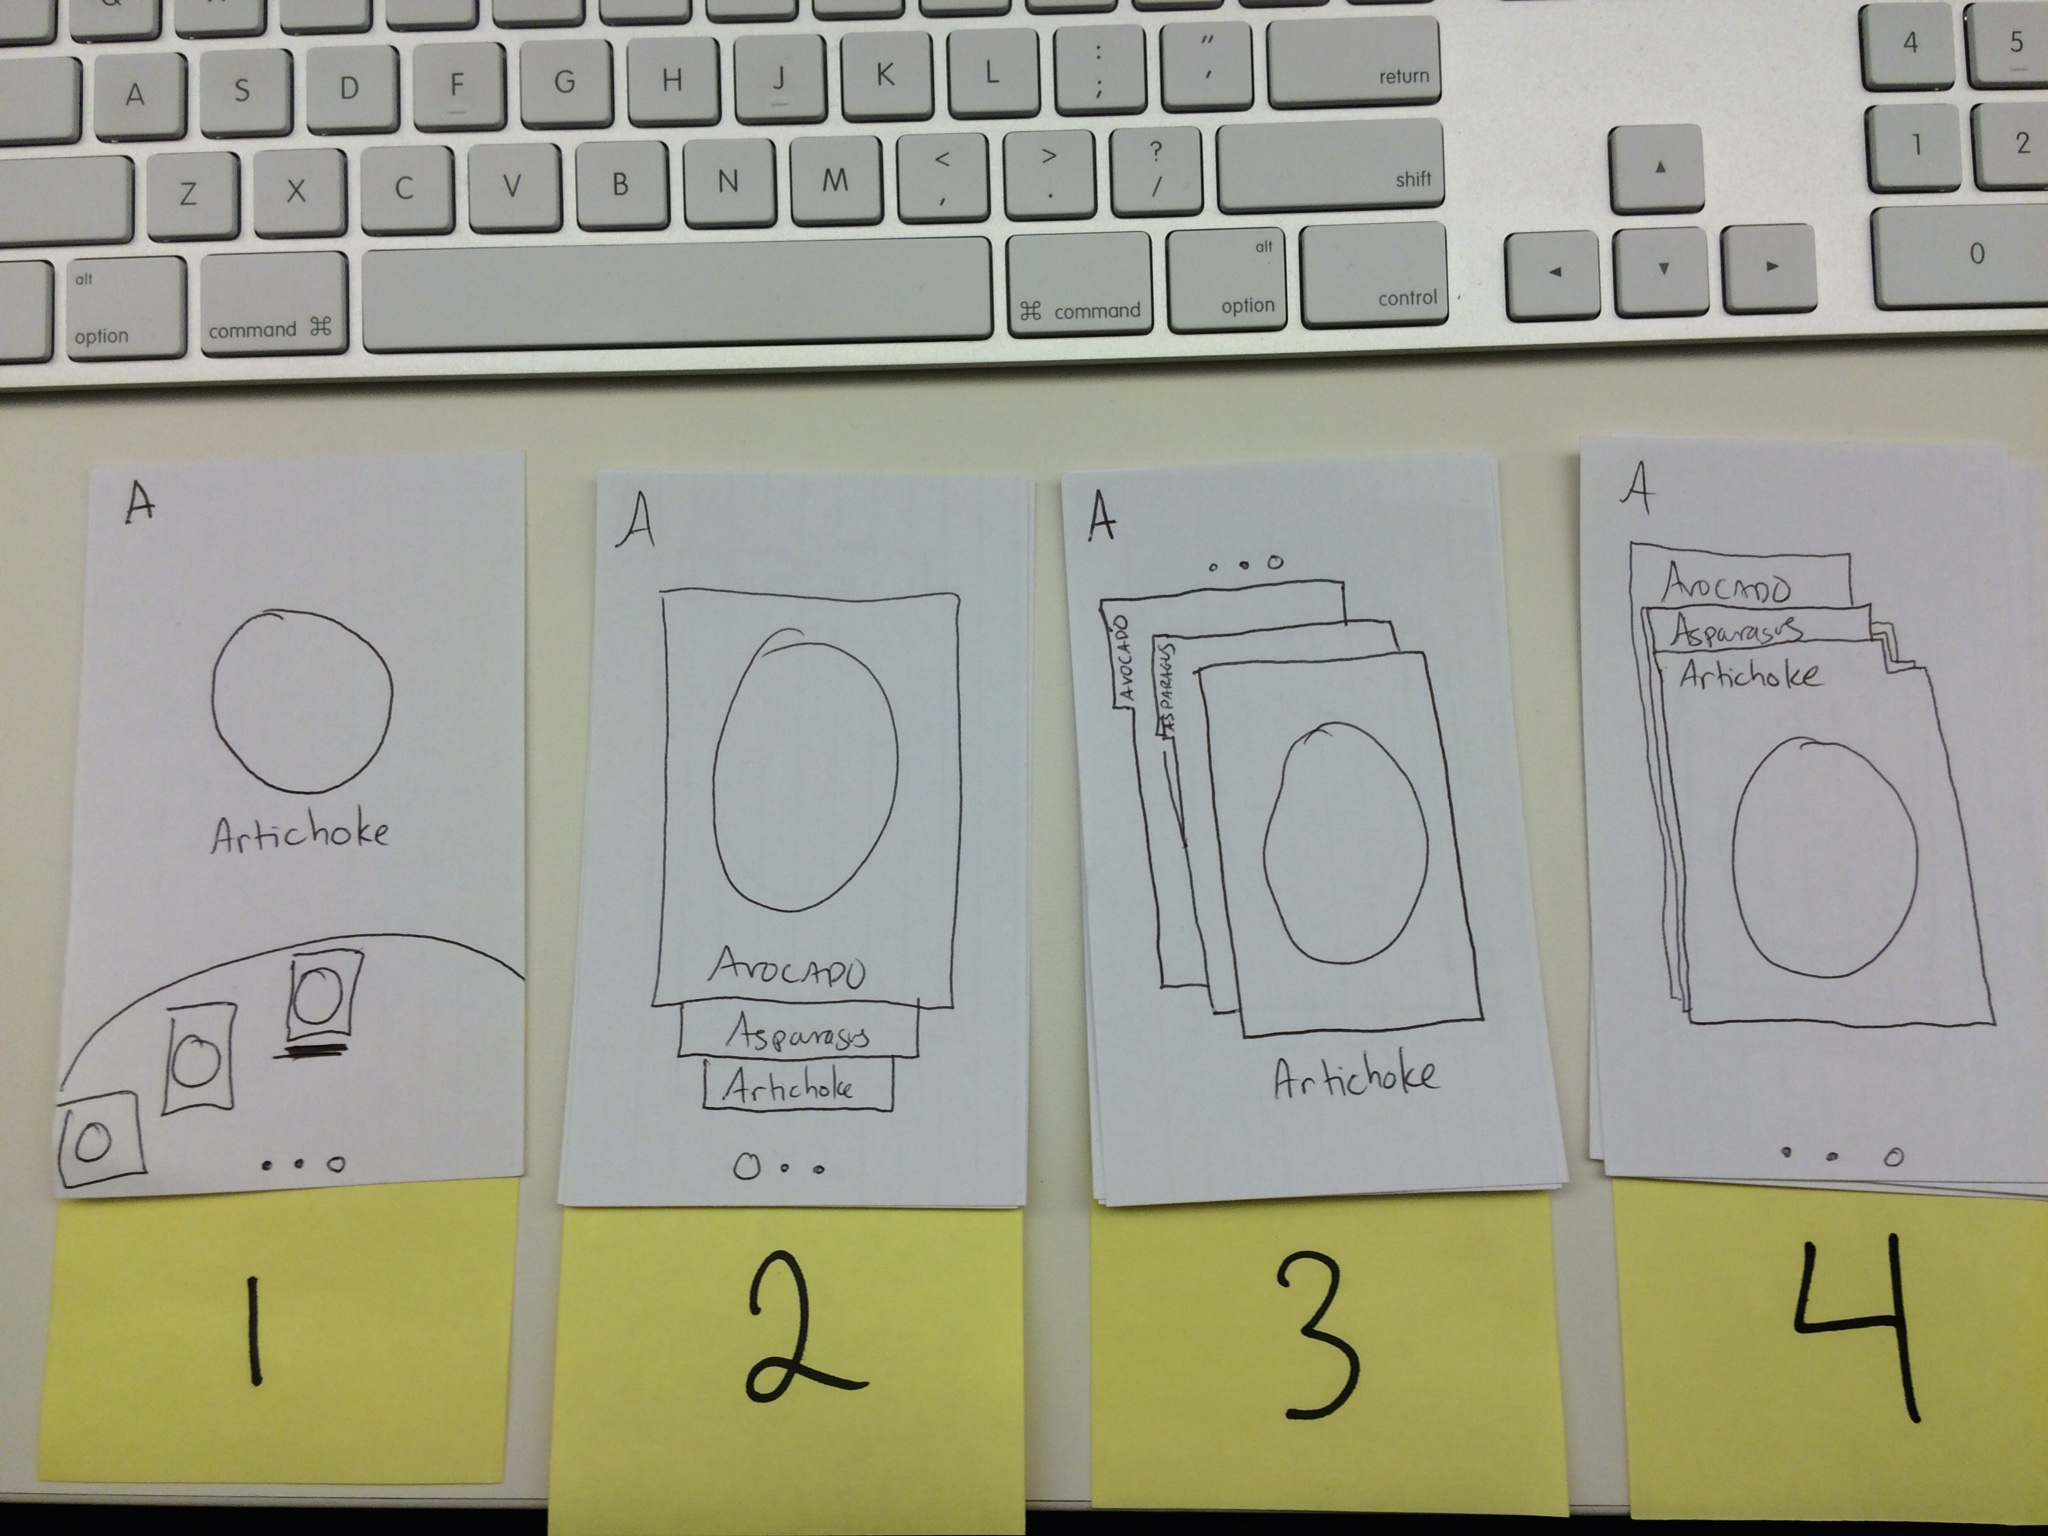 A S D F G H J K L : ; " ' return 4 5
Z X C V B N M < , > . ? / shift 1 2
alt option command ⌘ ⌘ command alt option control 0
A
Artichoke
1
A
AVOCADO
Asparagus
Artichoke
2
A
AVOCADO
ASPARAGUS
Artichoke
3
A
AVOCADO
Asparagus
Artichoke
4